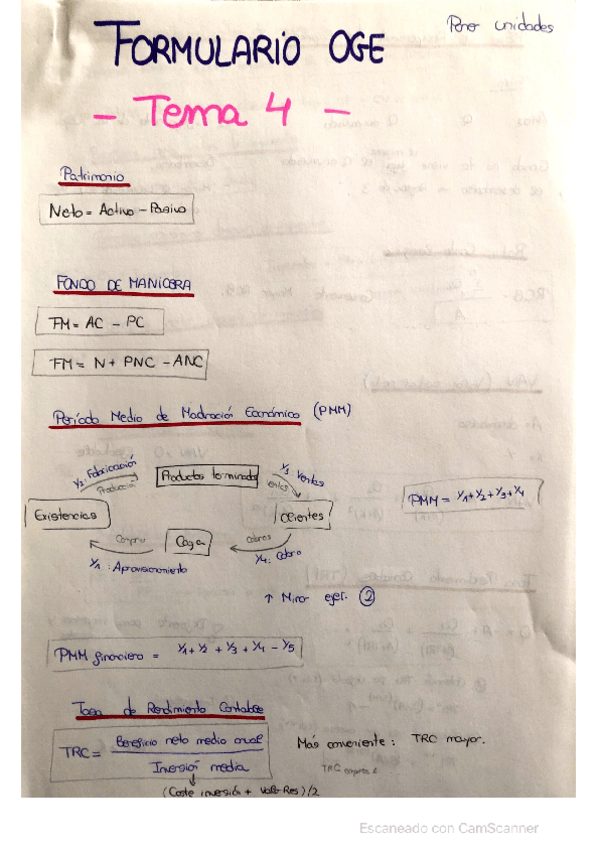 Poner unidades
FORMULARIO OGE
- Tema 4 -
Patrimonio
Neto = Activo - Pasivo
FONDO DE MANIOBRA
FM = AC - PC
FM = N + PNC - ANC
Período Medio de Maduración Económico (PMM)
Y2: Fabricación
Producción
Productos terminados
Y3 Ventas
Ventas
Existencias
Clientes
PMM = Y1 + Y2 + Y3 + Y4
Compras
Caja
Cobros
Y4: Cobro
Y1: Aprovisionamiento
↑ Mirar ejer. 2
PMM financiero = Y1 + Y2 + Y3 + Y4 - Y5
Tasa de Rendimiento Contable
TRC = Beneficio neto medio anual / Inversión media
Más conveniente: TRC mayor.
TRC
(Coste inversión + Valor Res)/2
Escaneado con CamScanner